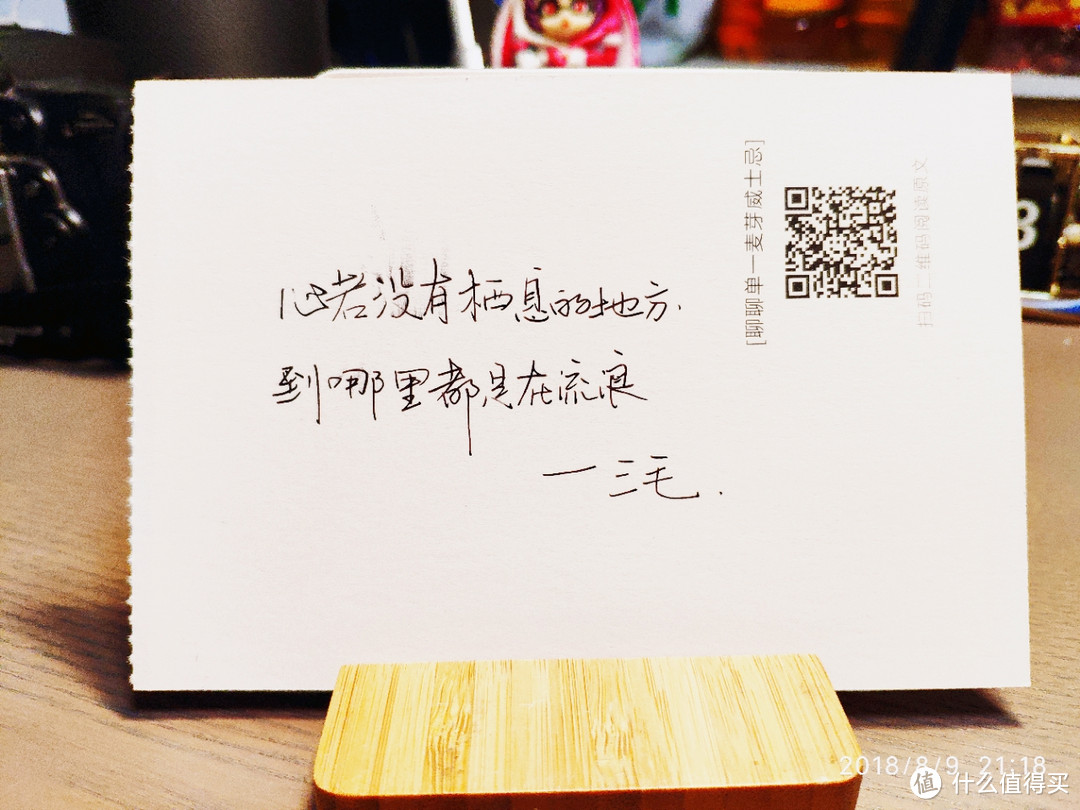 心若没有栖息的地方.
到哪里都是在流浪
一三毛.
[聊聊单一麦芽威士忌]
扫码二维码阅读原文
8
2018/8/9 21:18
值 什么值得买